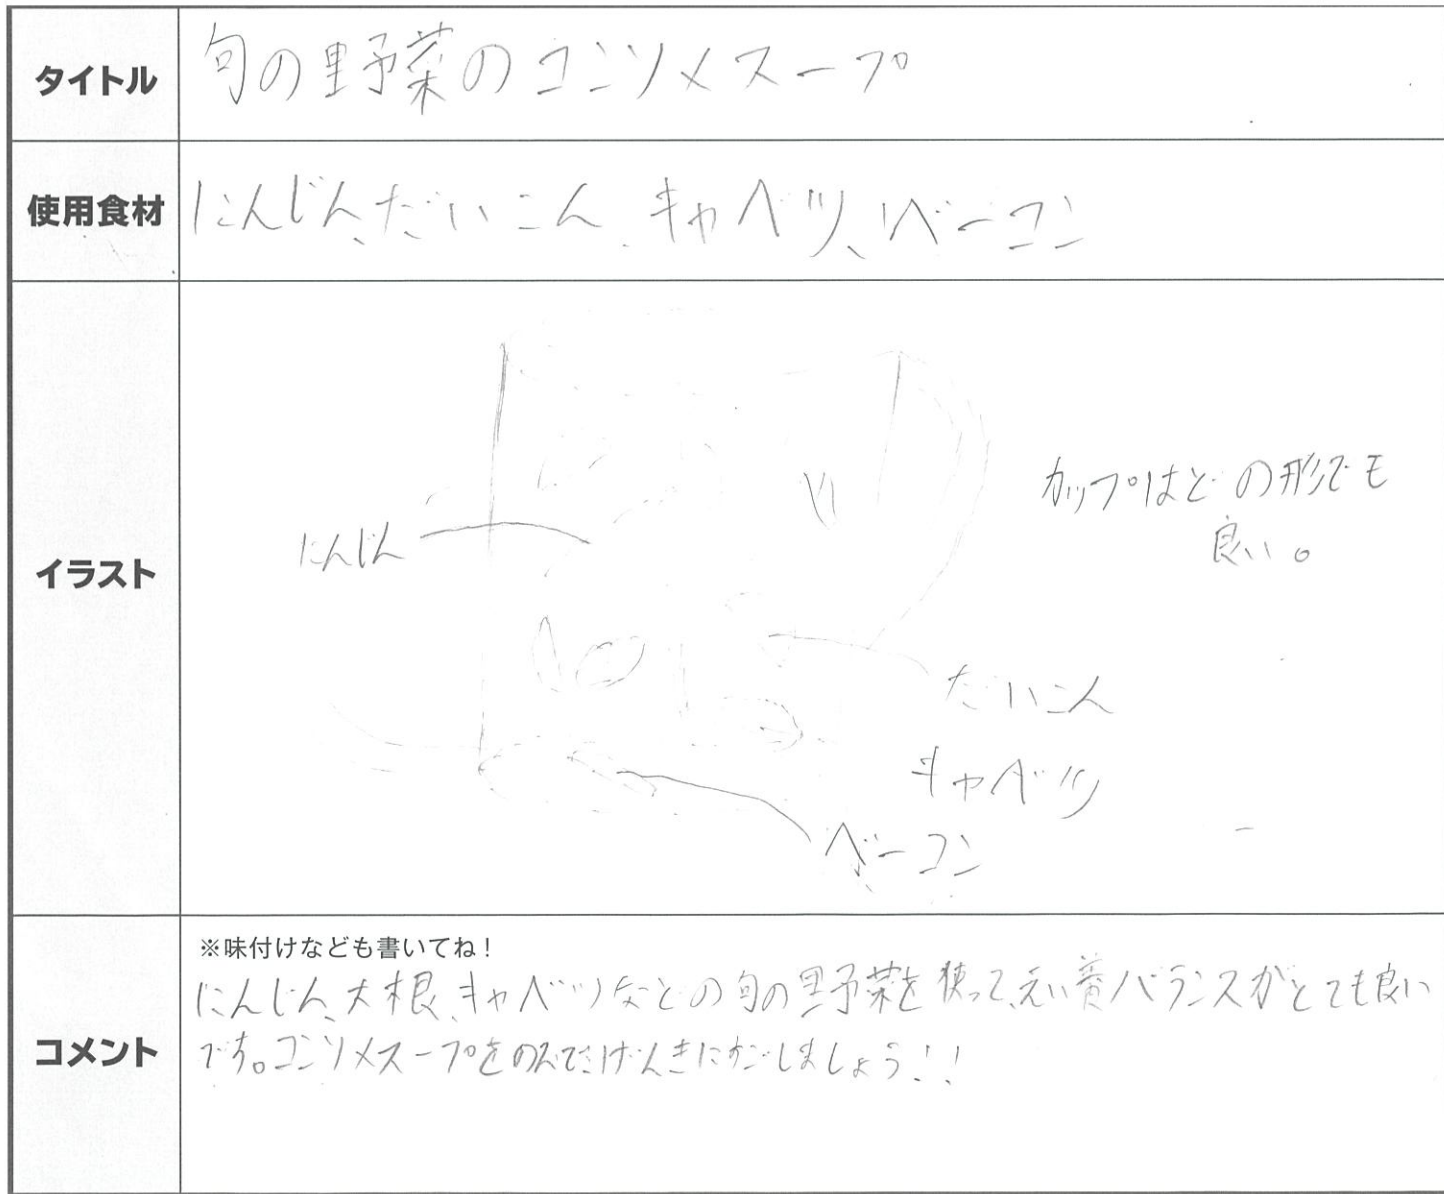 タイトル
旬の野菜のコンソメスープ
使用食材
にんじん、だいこん、キャベツ、ベーコン
イラスト
にんじん
カップはどの形でも
良い。
だいこん
キャベツ
ベーコン
コメント
※味付けなども書いてね!
にんじん、大根、キャベツなどの旬の野菜を使って、えい養バランスがとても良い
です。コンソメスープをのんでげんきにすごしましょう!!